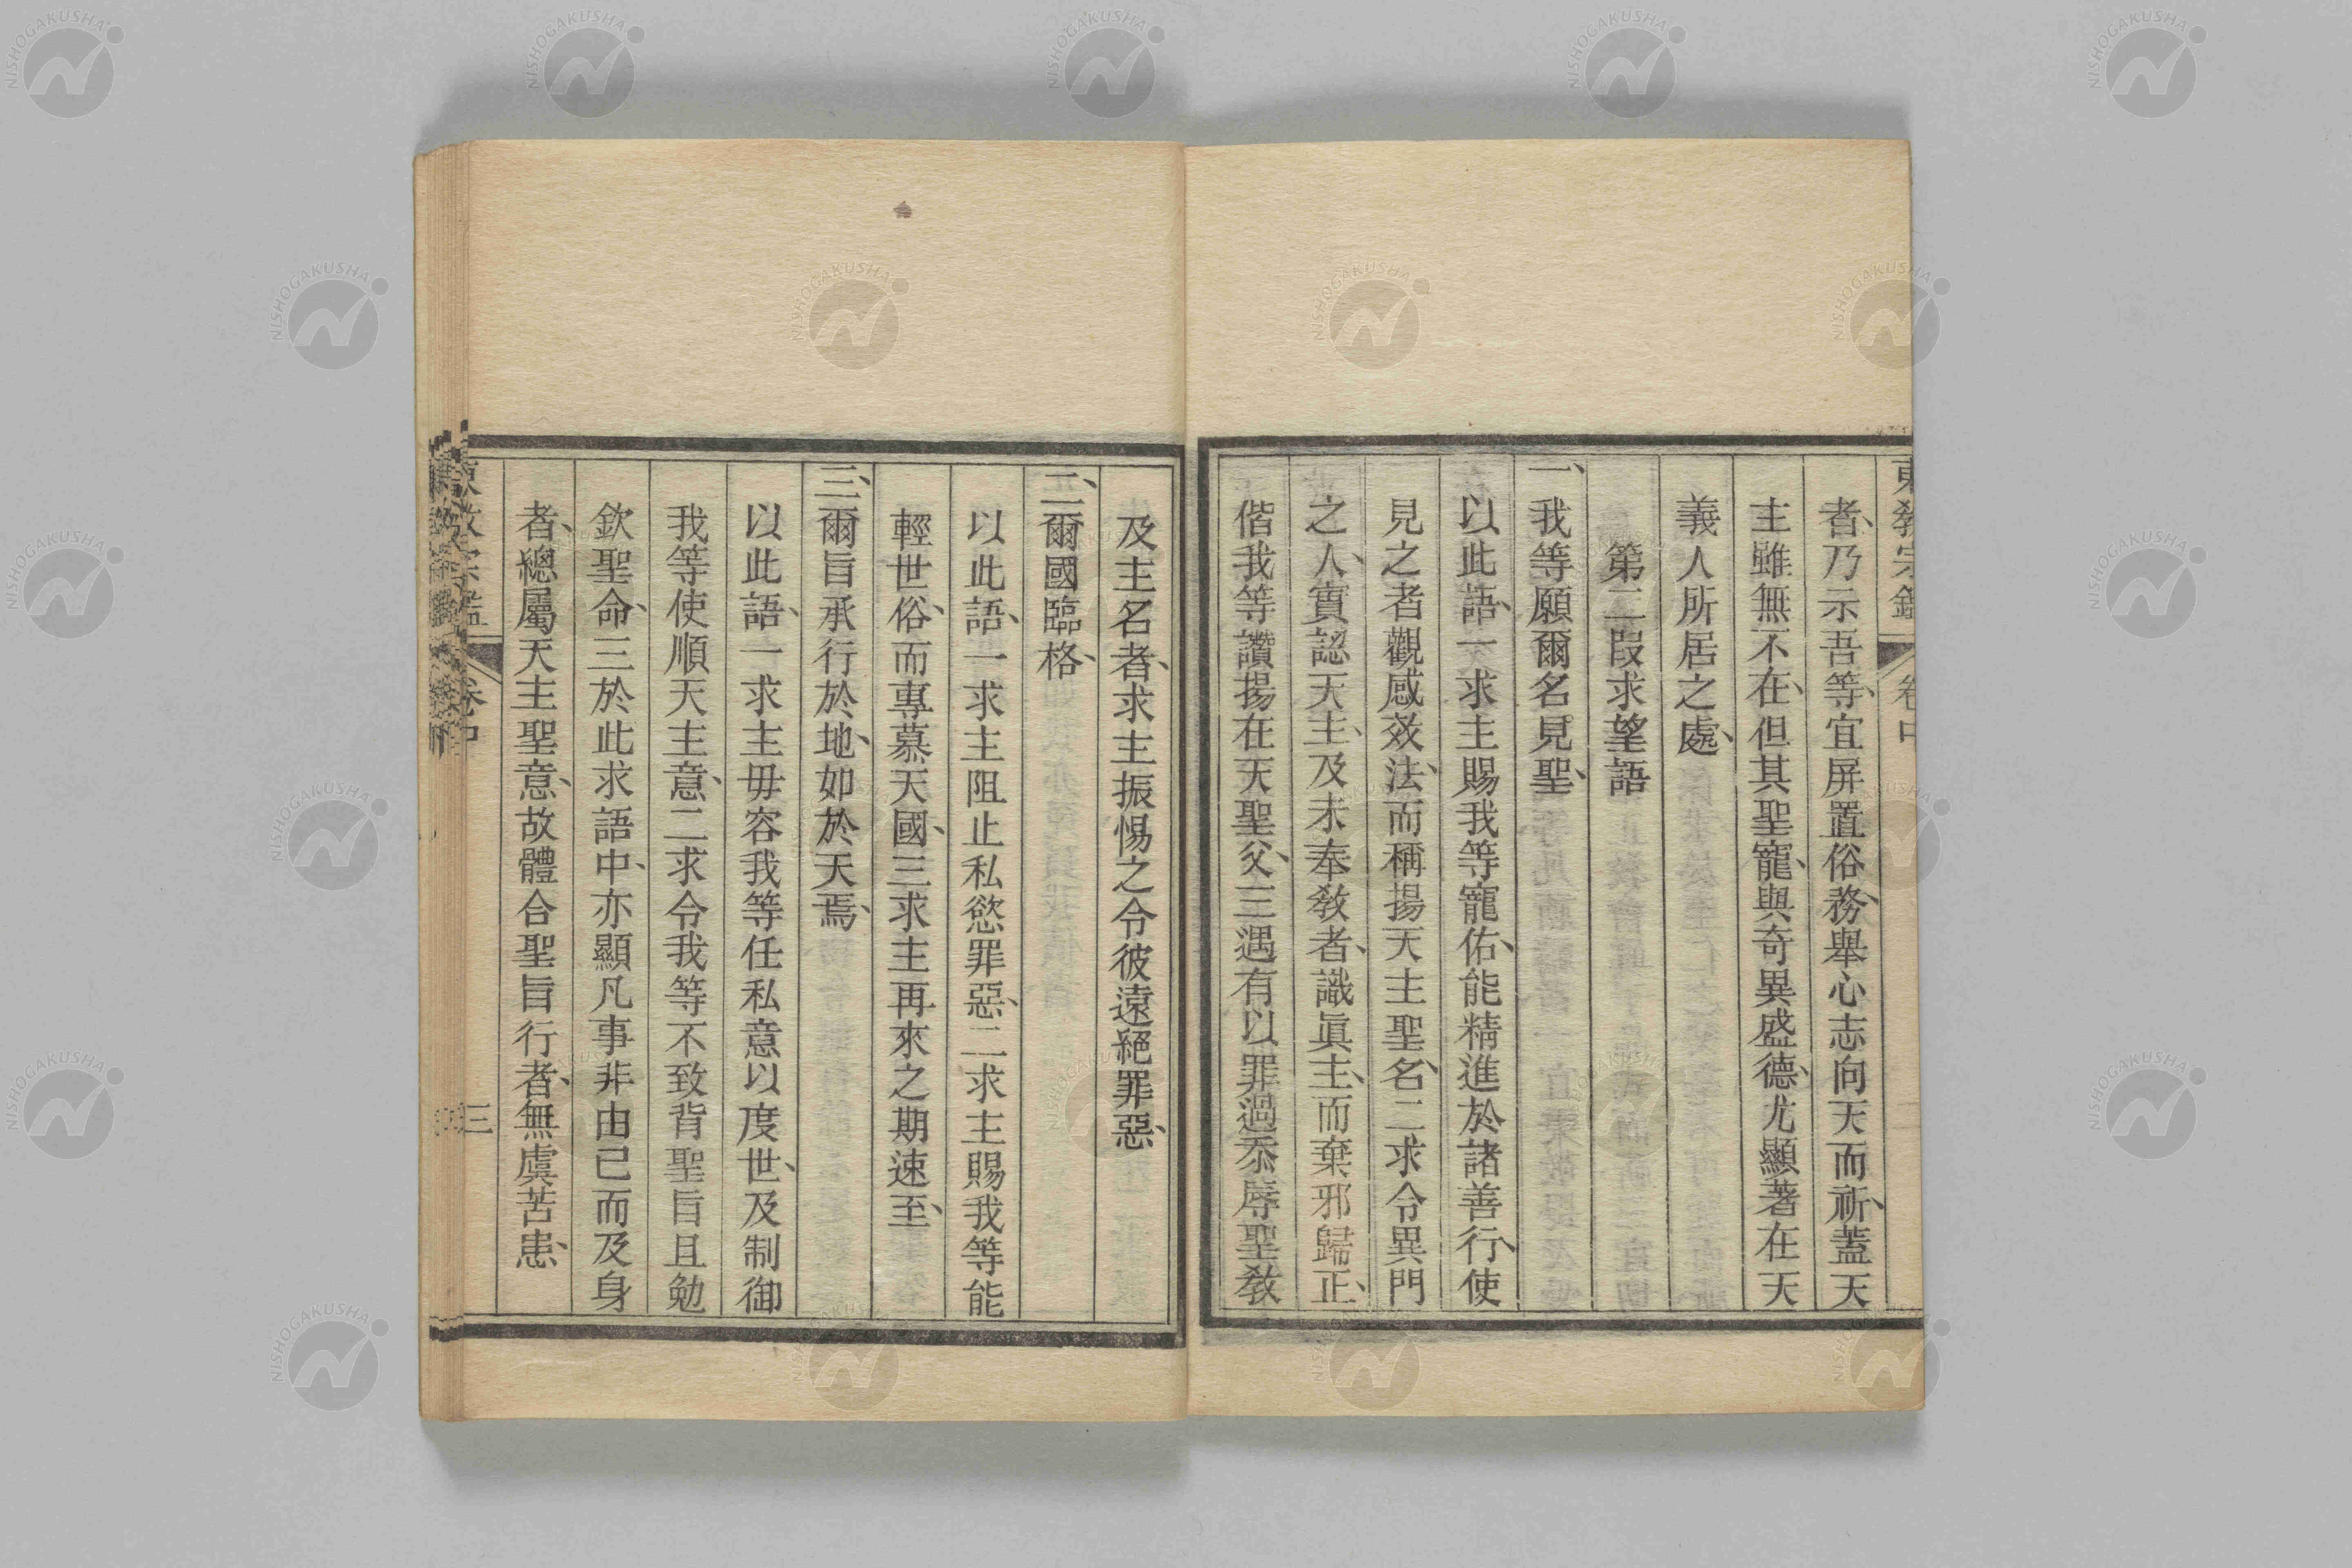 東教宗鑑 卷中
者、乃示吾等、宜屏置俗務、舉心志向天而祈、蓋天
主雖無不在、但其聖寵、與奇異盛德、尤顯著在天
義人所居之處、
第二段求望語
一、我等願爾名見聖、
以此語、一求主賜我等寵佑、能精進於諸善行、使
見之者觀感效法、而稱揚天主聖名、二求令異門
之人、實認天主、及未奉教者、識眞主、而棄邪歸正、
偕我等讚揚在天聖父、三遇有以罪過忝辱聖教
及主名者、求主振惕之令彼遠絕罪惡、
二、爾國臨格、
以此語、一求主阻止私慾罪惡、二求主賜我等能
輕世俗、而專慕天國、三求主再來之期速至、
三、爾旨承行於地、如於天焉、
以此語、一求主毋容我等任私意以度世、及制御
我等使順天主意、二求令我等不致背聖旨且勉
欽聖命、三於此求語中、亦顯凡事非由己而及身
者、總屬天主聖意、故體合聖旨行者、無虞苦患、
東教宗鑑 卷中 三
NISHOGAKUSHA